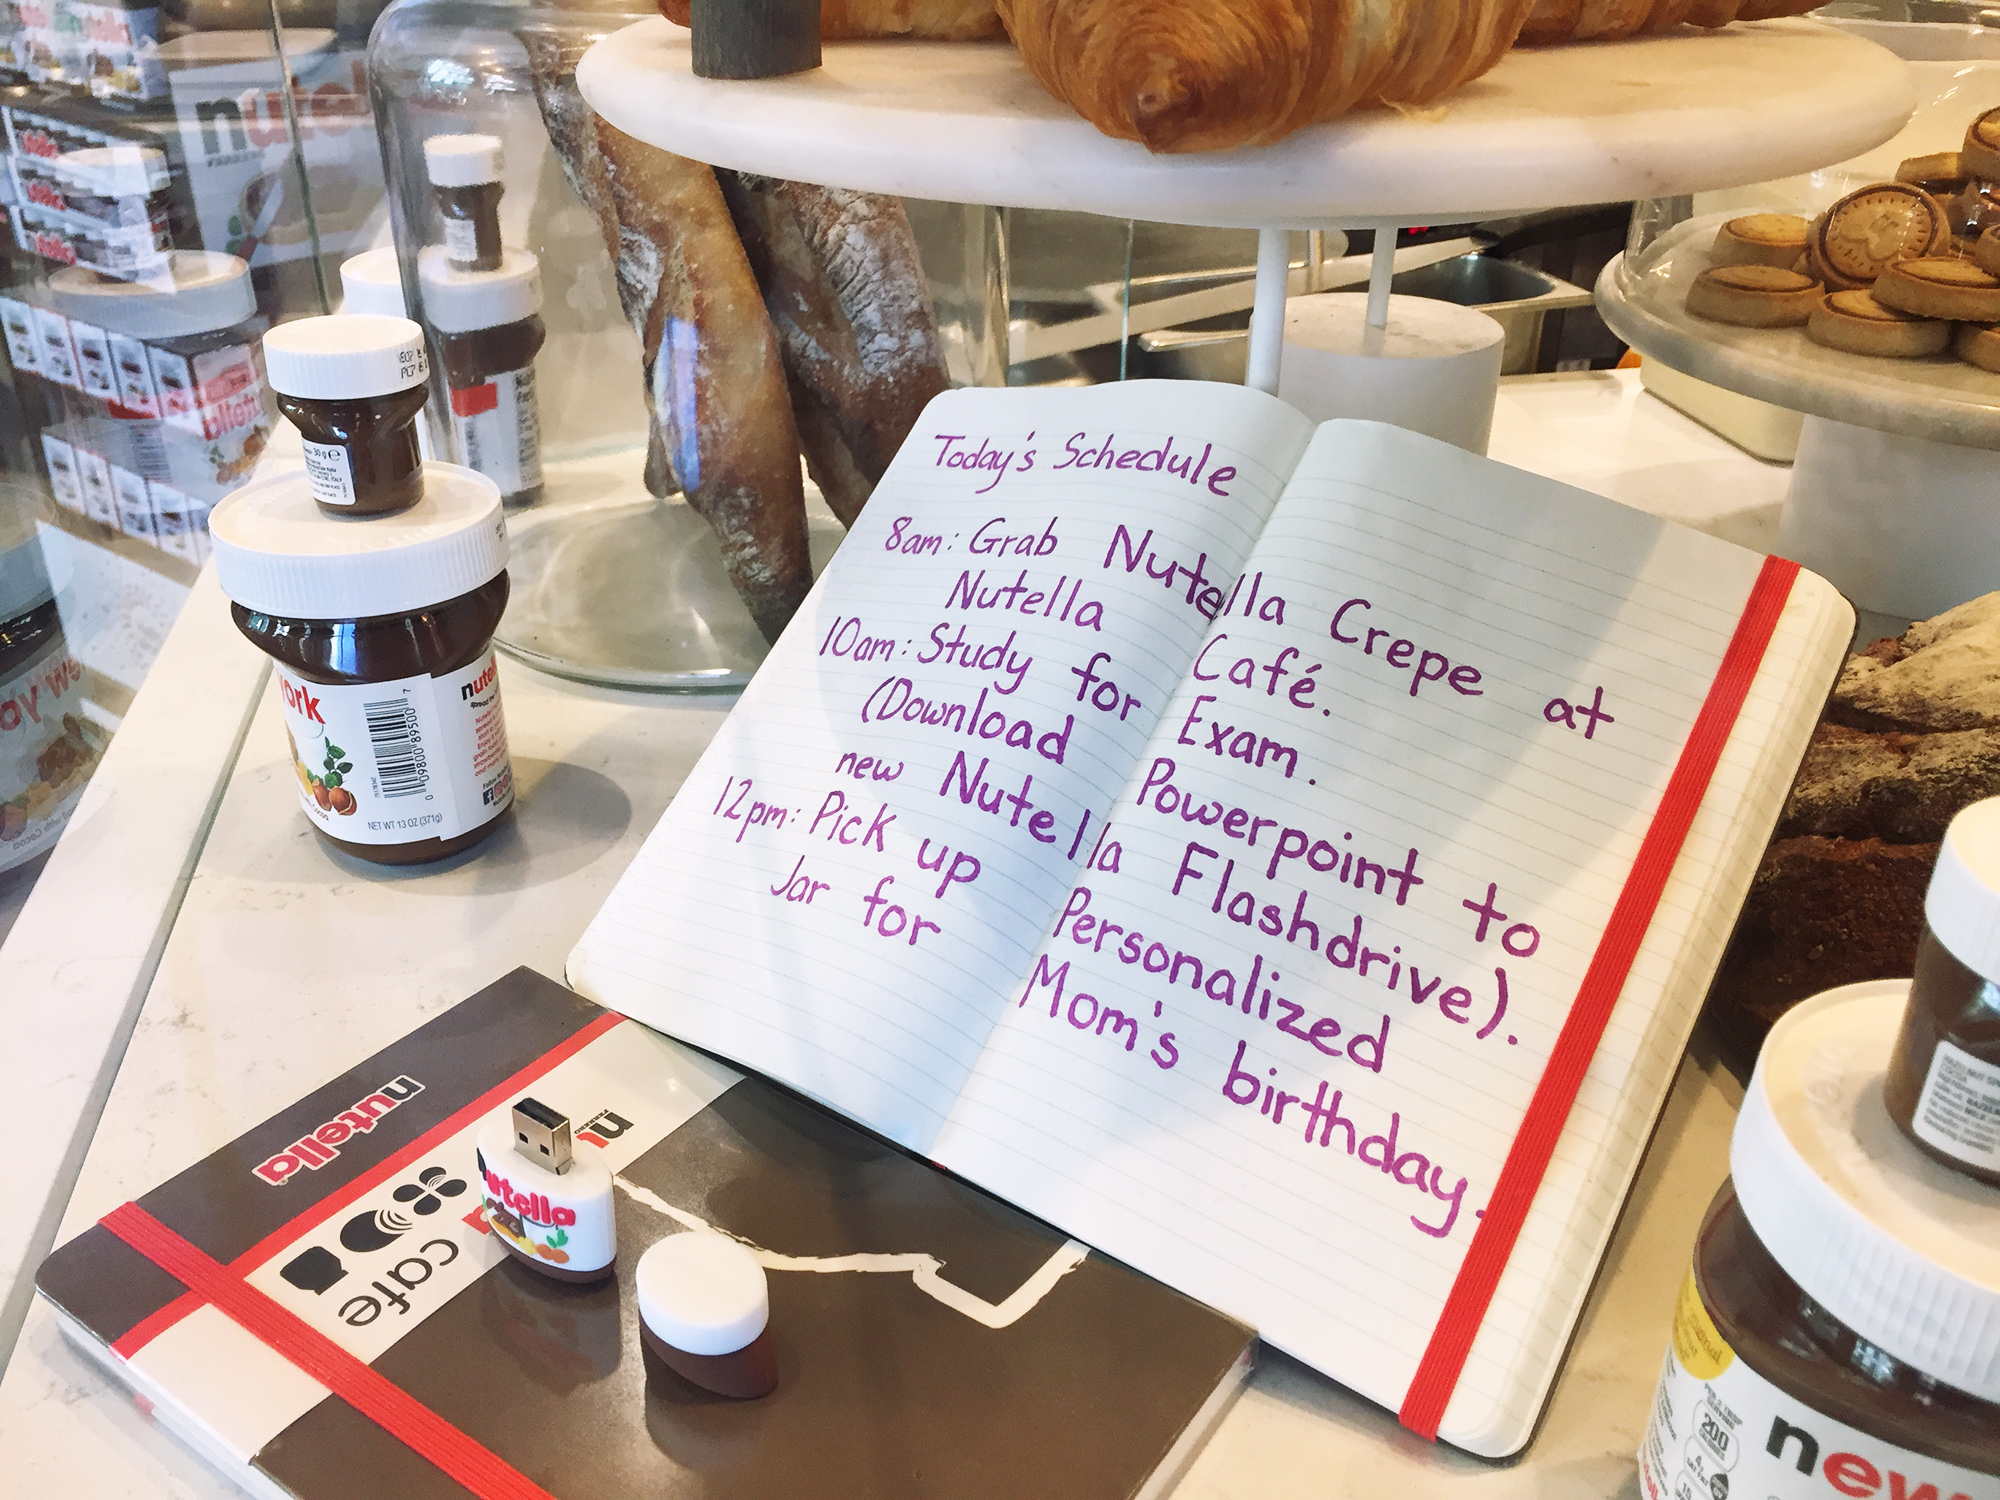 Today's Schedule
8am: Grab Nutella Crepe at
Nutella Café.
10am: Study for Exam.
(Download Powerpoint to
new Nutella Flashdrive).
12pm: Pick up Personalized
Jar for Mom's birthday.
nutella
cafe
nutella
nutella
30 g e
york
NET WT 13 OZ (371g)
0 09800 89500 7
nutella
new
200